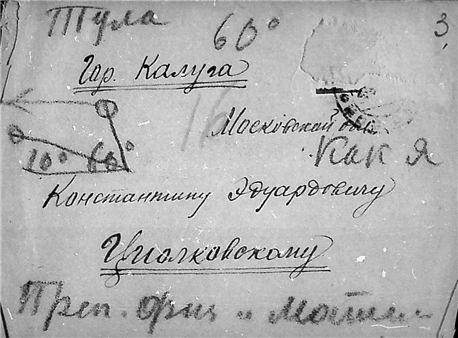 Тула 60° 3
Гор. Калуга
16
Московской обл.
10° 60° Как я
Константину Эдуардовичу
Циолковскому
Преп. физ и матем